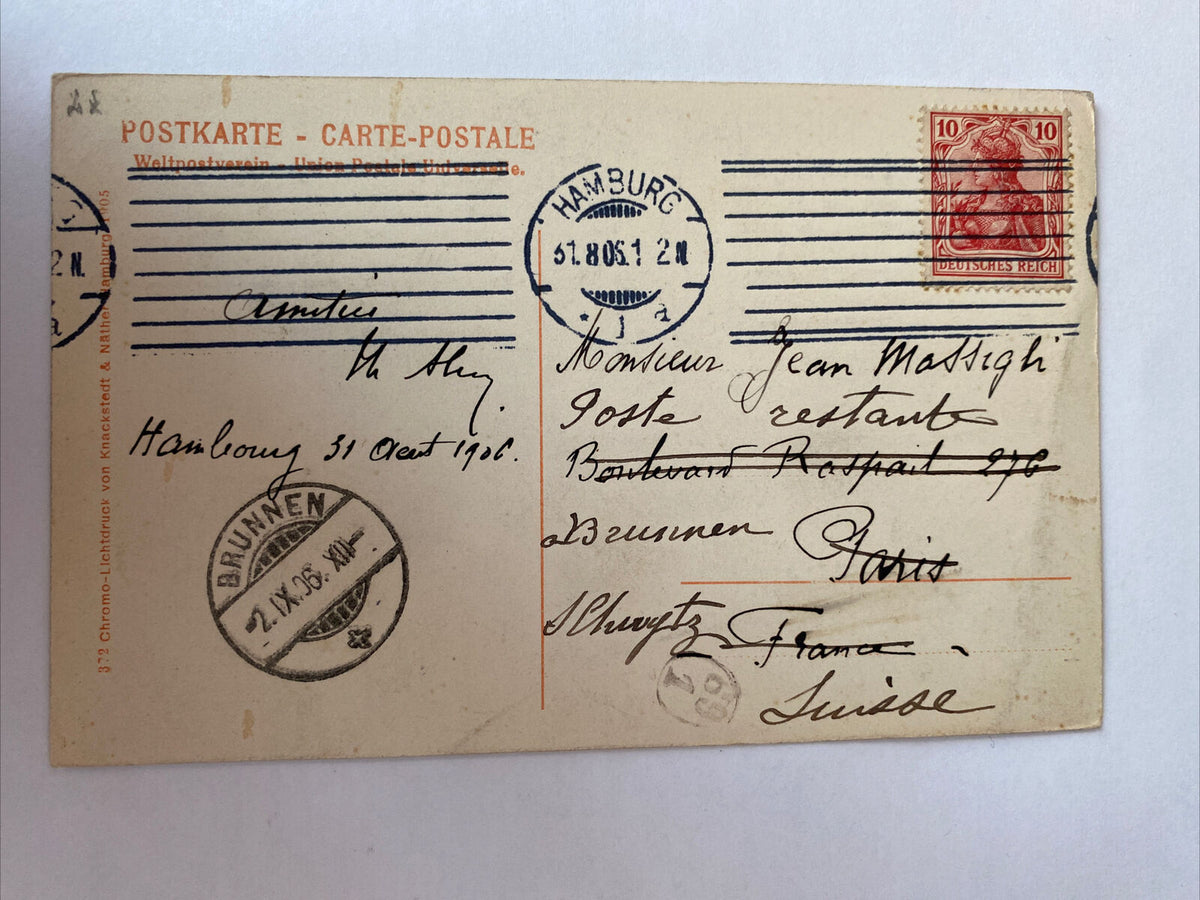 POSTKARTE - CARTE-POSTALE
Weltpostverein - Union Postale Universelle.
HAMBURG
31.8.06.1 2 N.
* 1 a
10 10
DEUTSCHES REICH
2 N.
a
372 Chromo-Lichtdruck von Knackstedt & Näther, Hamburg 1905
Hambourg 31 Aout 1906.
BRUNNEN
-2.IX.06. XII-
Monsieur Jean Massigli
Poste restante
Boulevard Raspail 276
Brunnen
Paris
Schwytz
France
Suisse
1